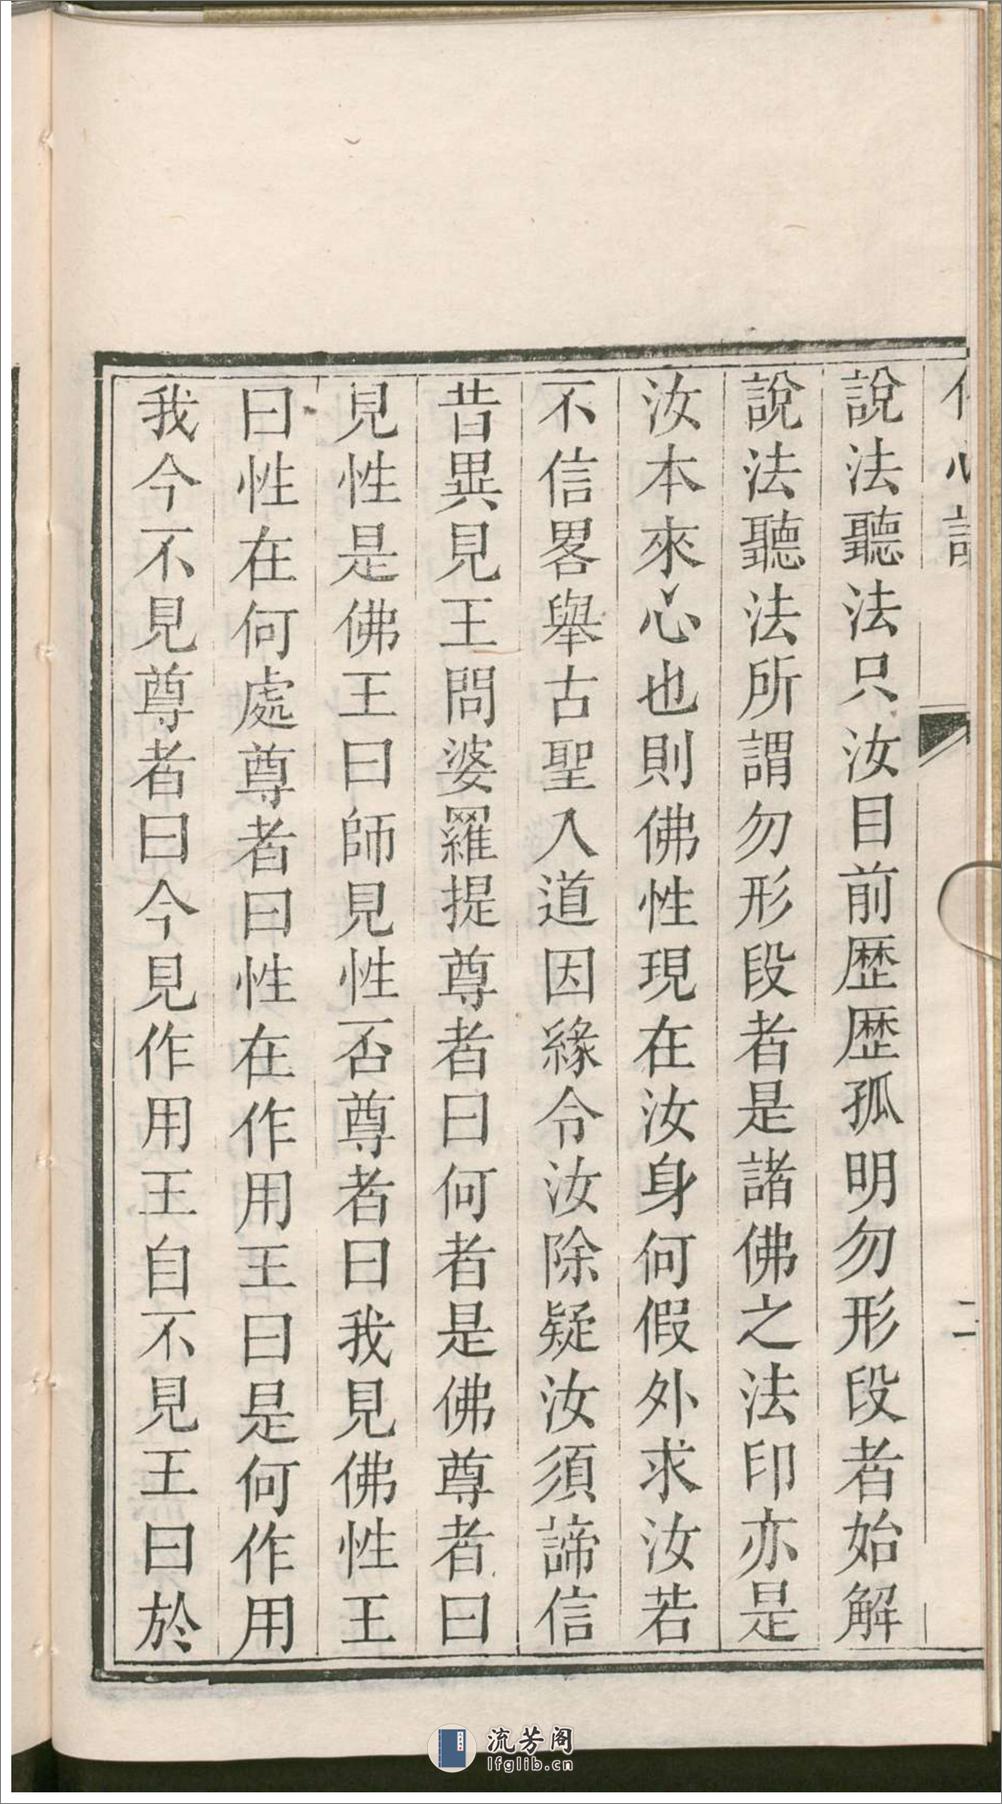 說法聽法只汝目前歷歷孤明勿形段者始解
說法聽法所謂勿形段者是諸佛之法印亦是
汝本來心也則佛性現在汝身何假外求汝若
不信畧舉古聖入道因緣令汝除疑汝須諦信
昔異見王問婆羅提尊者曰何者是佛尊者曰
見性是佛王曰師見性否尊者曰我見佛性王
曰性在何處尊者曰性在作用王曰是何作用
我今不見尊者曰今見作用王自不見王曰於
二
流芳阁
lfglib.cn